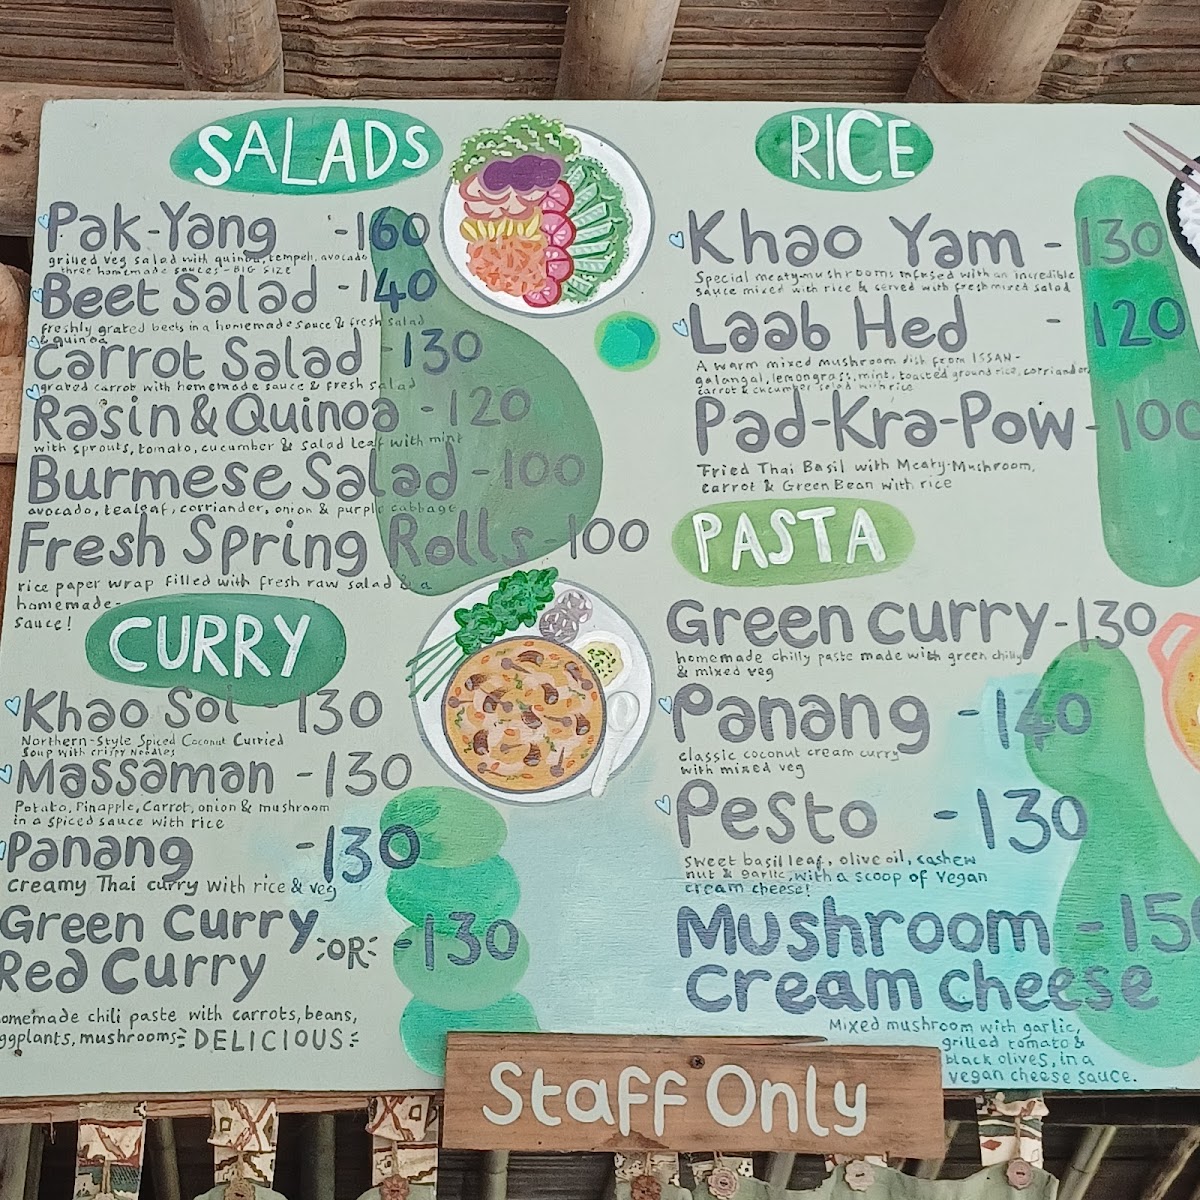 SALADS
Pak-Yang -160
grilled veg salad with quinoa, tempeh, avocado
three homemade sauces - BIG SIZE
Beet Salad -140
freshly grated beets in a homemade sauce & fresh salad
& quinoa
Carrot Salad -130
grated carrot with homemade sauce & fresh salad
Rasin & Quinoa -120
with sprouts, tomato, cucumber & salad leaf with mint
Burmese Salad -100
avocado, tealeaf, corriander, onion & purple cabbage
Fresh Spring Rolls -100
rice paper wrap filled with fresh raw salad & a
homemade-
sauce!
CURRY
Khao Soi - 130
Northern-Style Spiced Coconut Curried
Soup with crispy Noodles
Massaman -130
Potato, Pinapple, Carrot, onion & mushroom
in a spiced sauce with rice
Panang -130
creamy Thai curry with rice & veg
Green Curry
OR -130
Red Curry
omemade chili paste with carrots, beans,
ggplants, mushrooms DELICIOUS
RICE
Khao Yam - 130
Special meaty-mushrooms infused with an incredible
sauce mixed with rice & served with fresh mixed salad
Laab Hed - 120
A warm mixed mushroom dish from ISSAN -
galangal, lemongrass, mint, toasted ground rice, corriander
carrot & cucumber salad with rice
Pad-Kra-Pow -100
Fried Thai Basil with Meaty-Mushroom,
carrot & Green Bean with rice
PASTA
Green curry -130
homemade chilly paste made with green chilly
& mixed veg
Panang -140
classic coconut cream curry
with mixed veg
Pesto -130
sweet basil leaf, olive oil, cashew
nut & garlic, with a scoop of Vegan
cream cheese!
Mushroom -150
Cream cheese
Mixed mushroom with garlic,
grilled tomato &
black olives, in a
vegan cheese sauce.
Staff Only